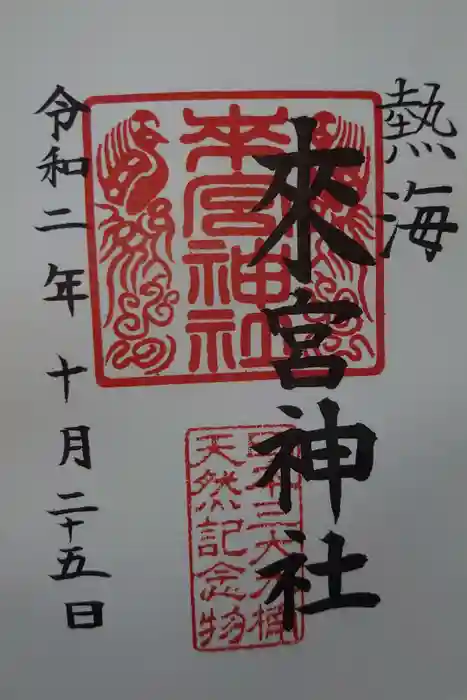 熱海
來宮神社
來宮神社
日本三大大楠
天然記念物
令和二年十月二十五日